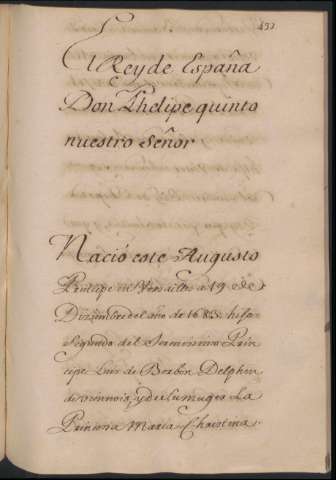 El Rey de España
Don Phelipe quinto
nuestro Señor
Nació este Augusto
Principe en Versalles a 19 de
Diziembre del año de 1683. hijo
Segundo del Serenissimo Prin
cipe Luis de Borbon Delphin
de viennois, y de su muger La
Princesa Maria Christina.